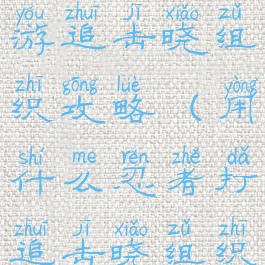 yóu zhuī jī xiǎo zǔ
游追击晓组
zhī gōng lüè yòng
织攻略（用
shí me rěn zhě dǎ
什么忍者打
zhuī jī xiǎo zǔ zhī
追击晓组织